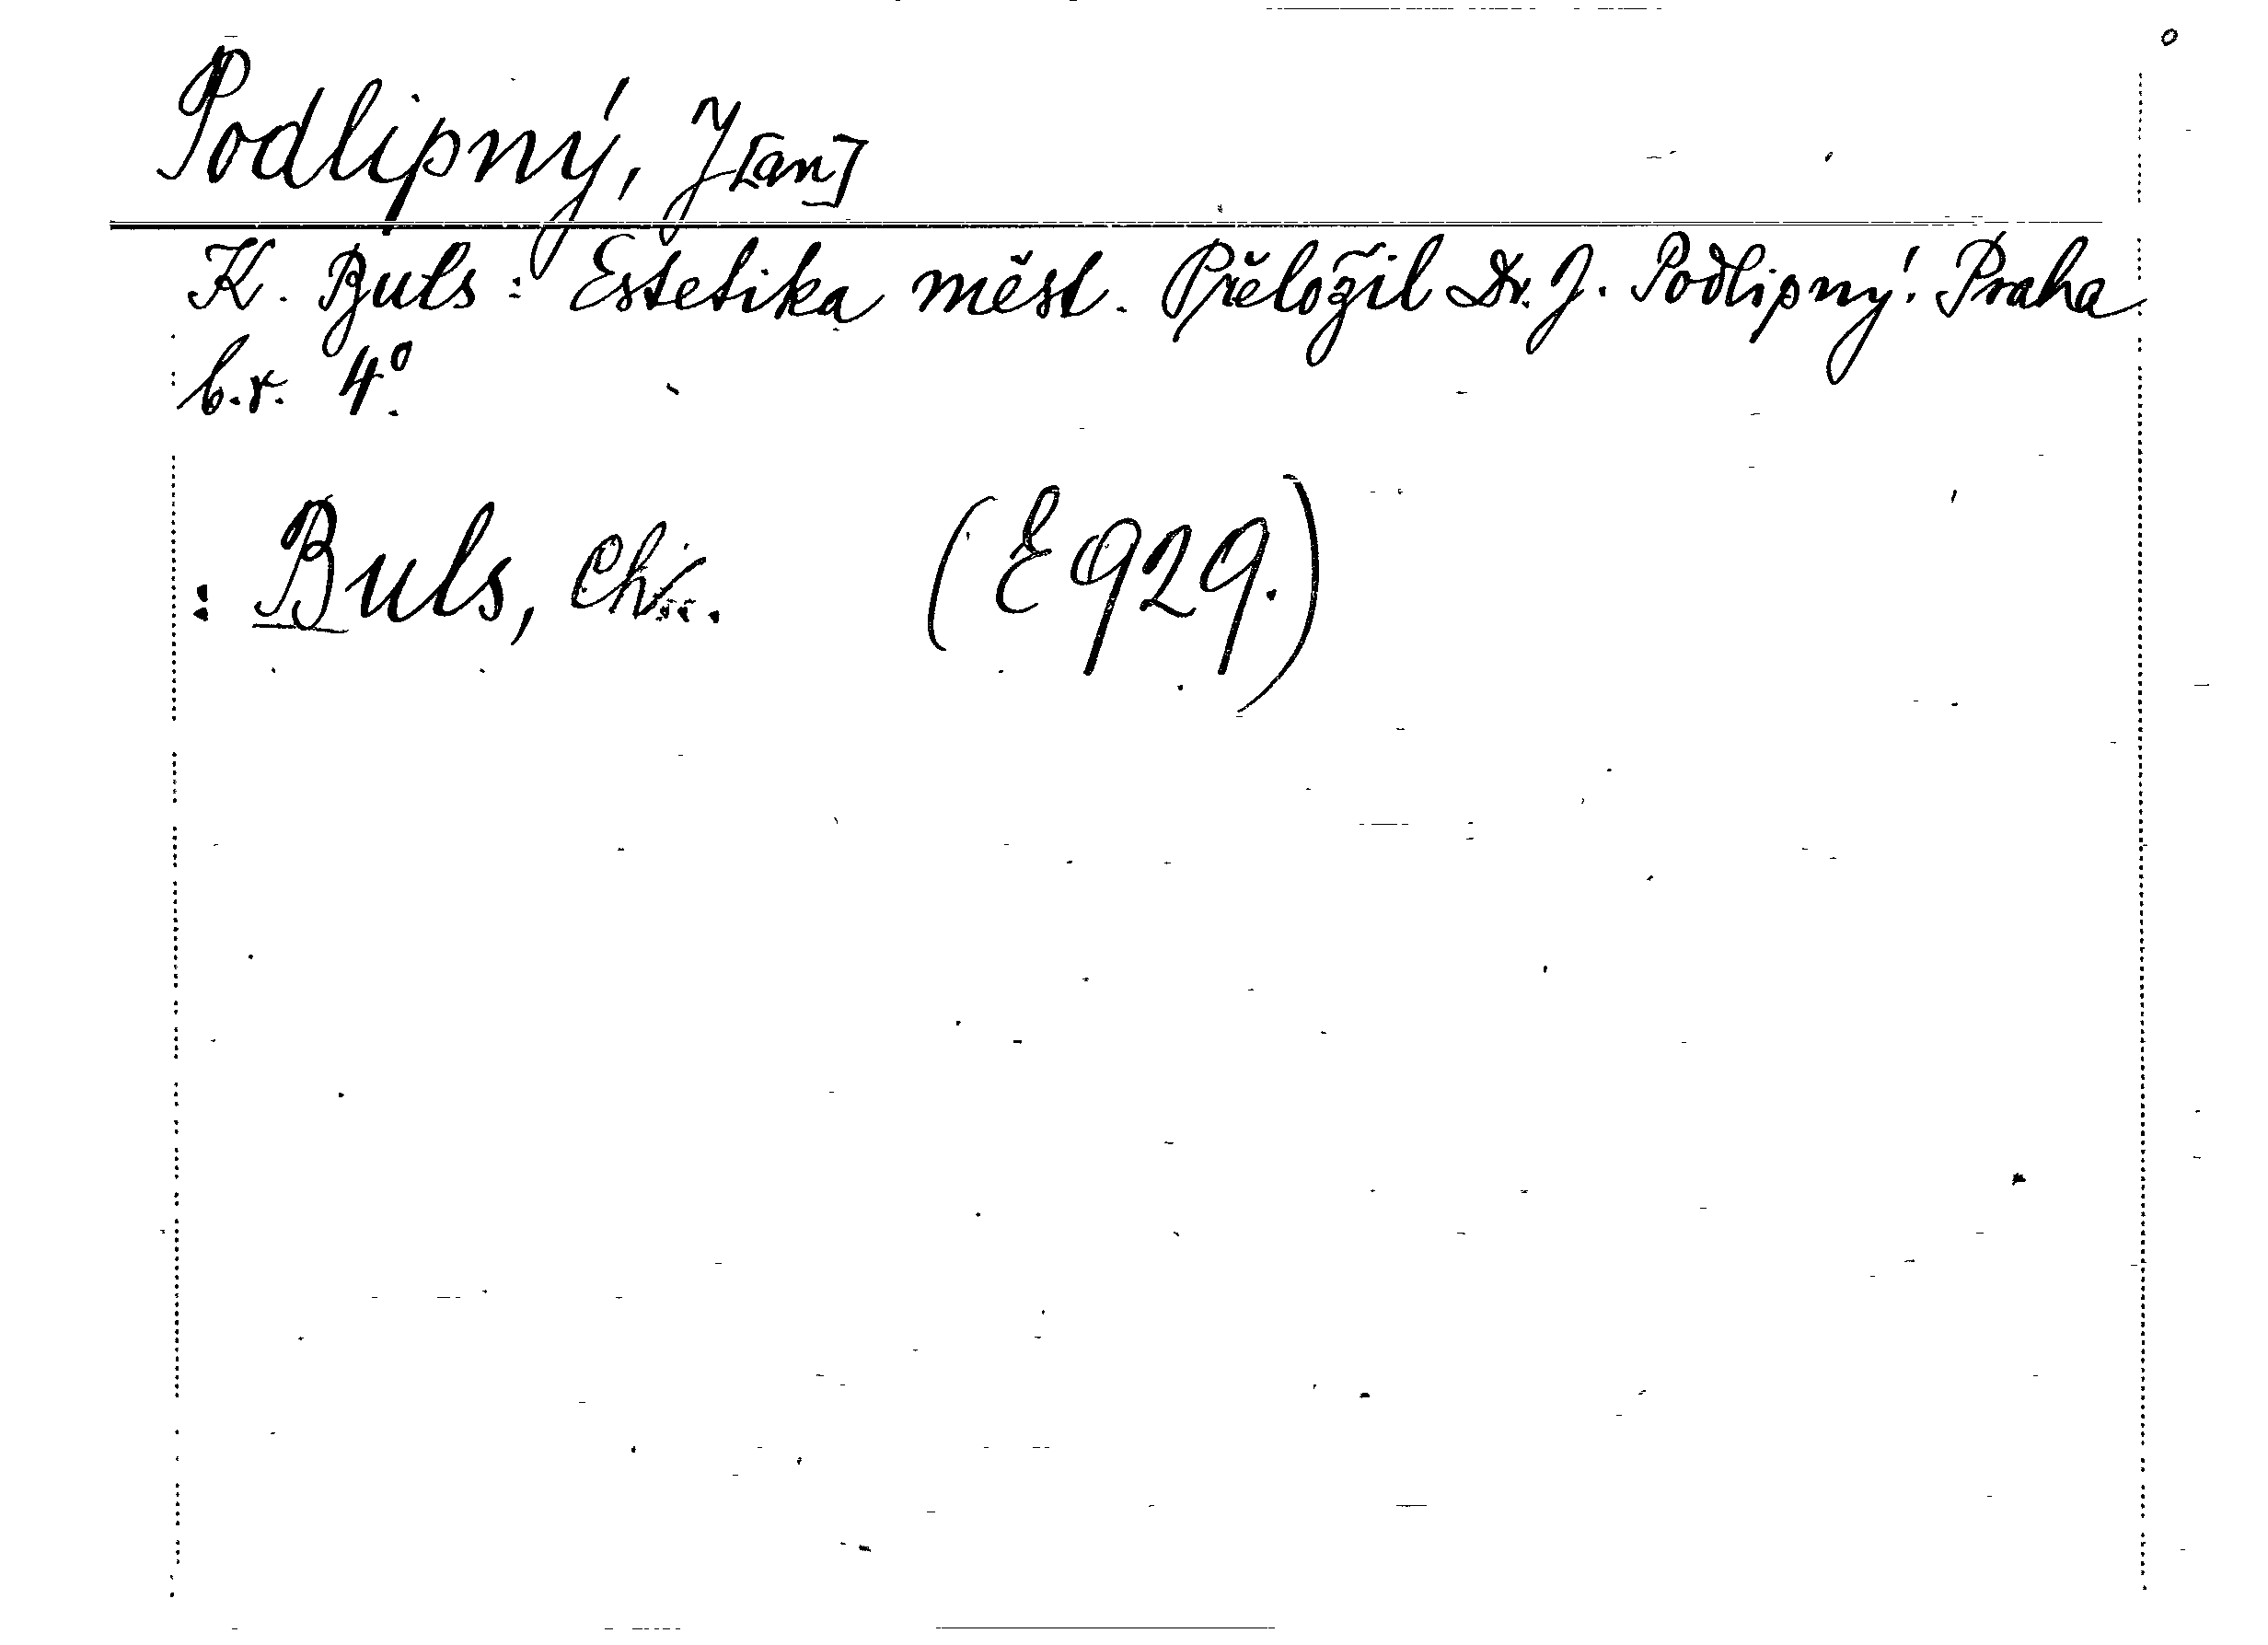 Podlipný, J[an]
K. Buls: Estetika měst. Přeložil Dr. J. Podlipný. Praha
b.r. 4°.
: Buls, (E 929.)